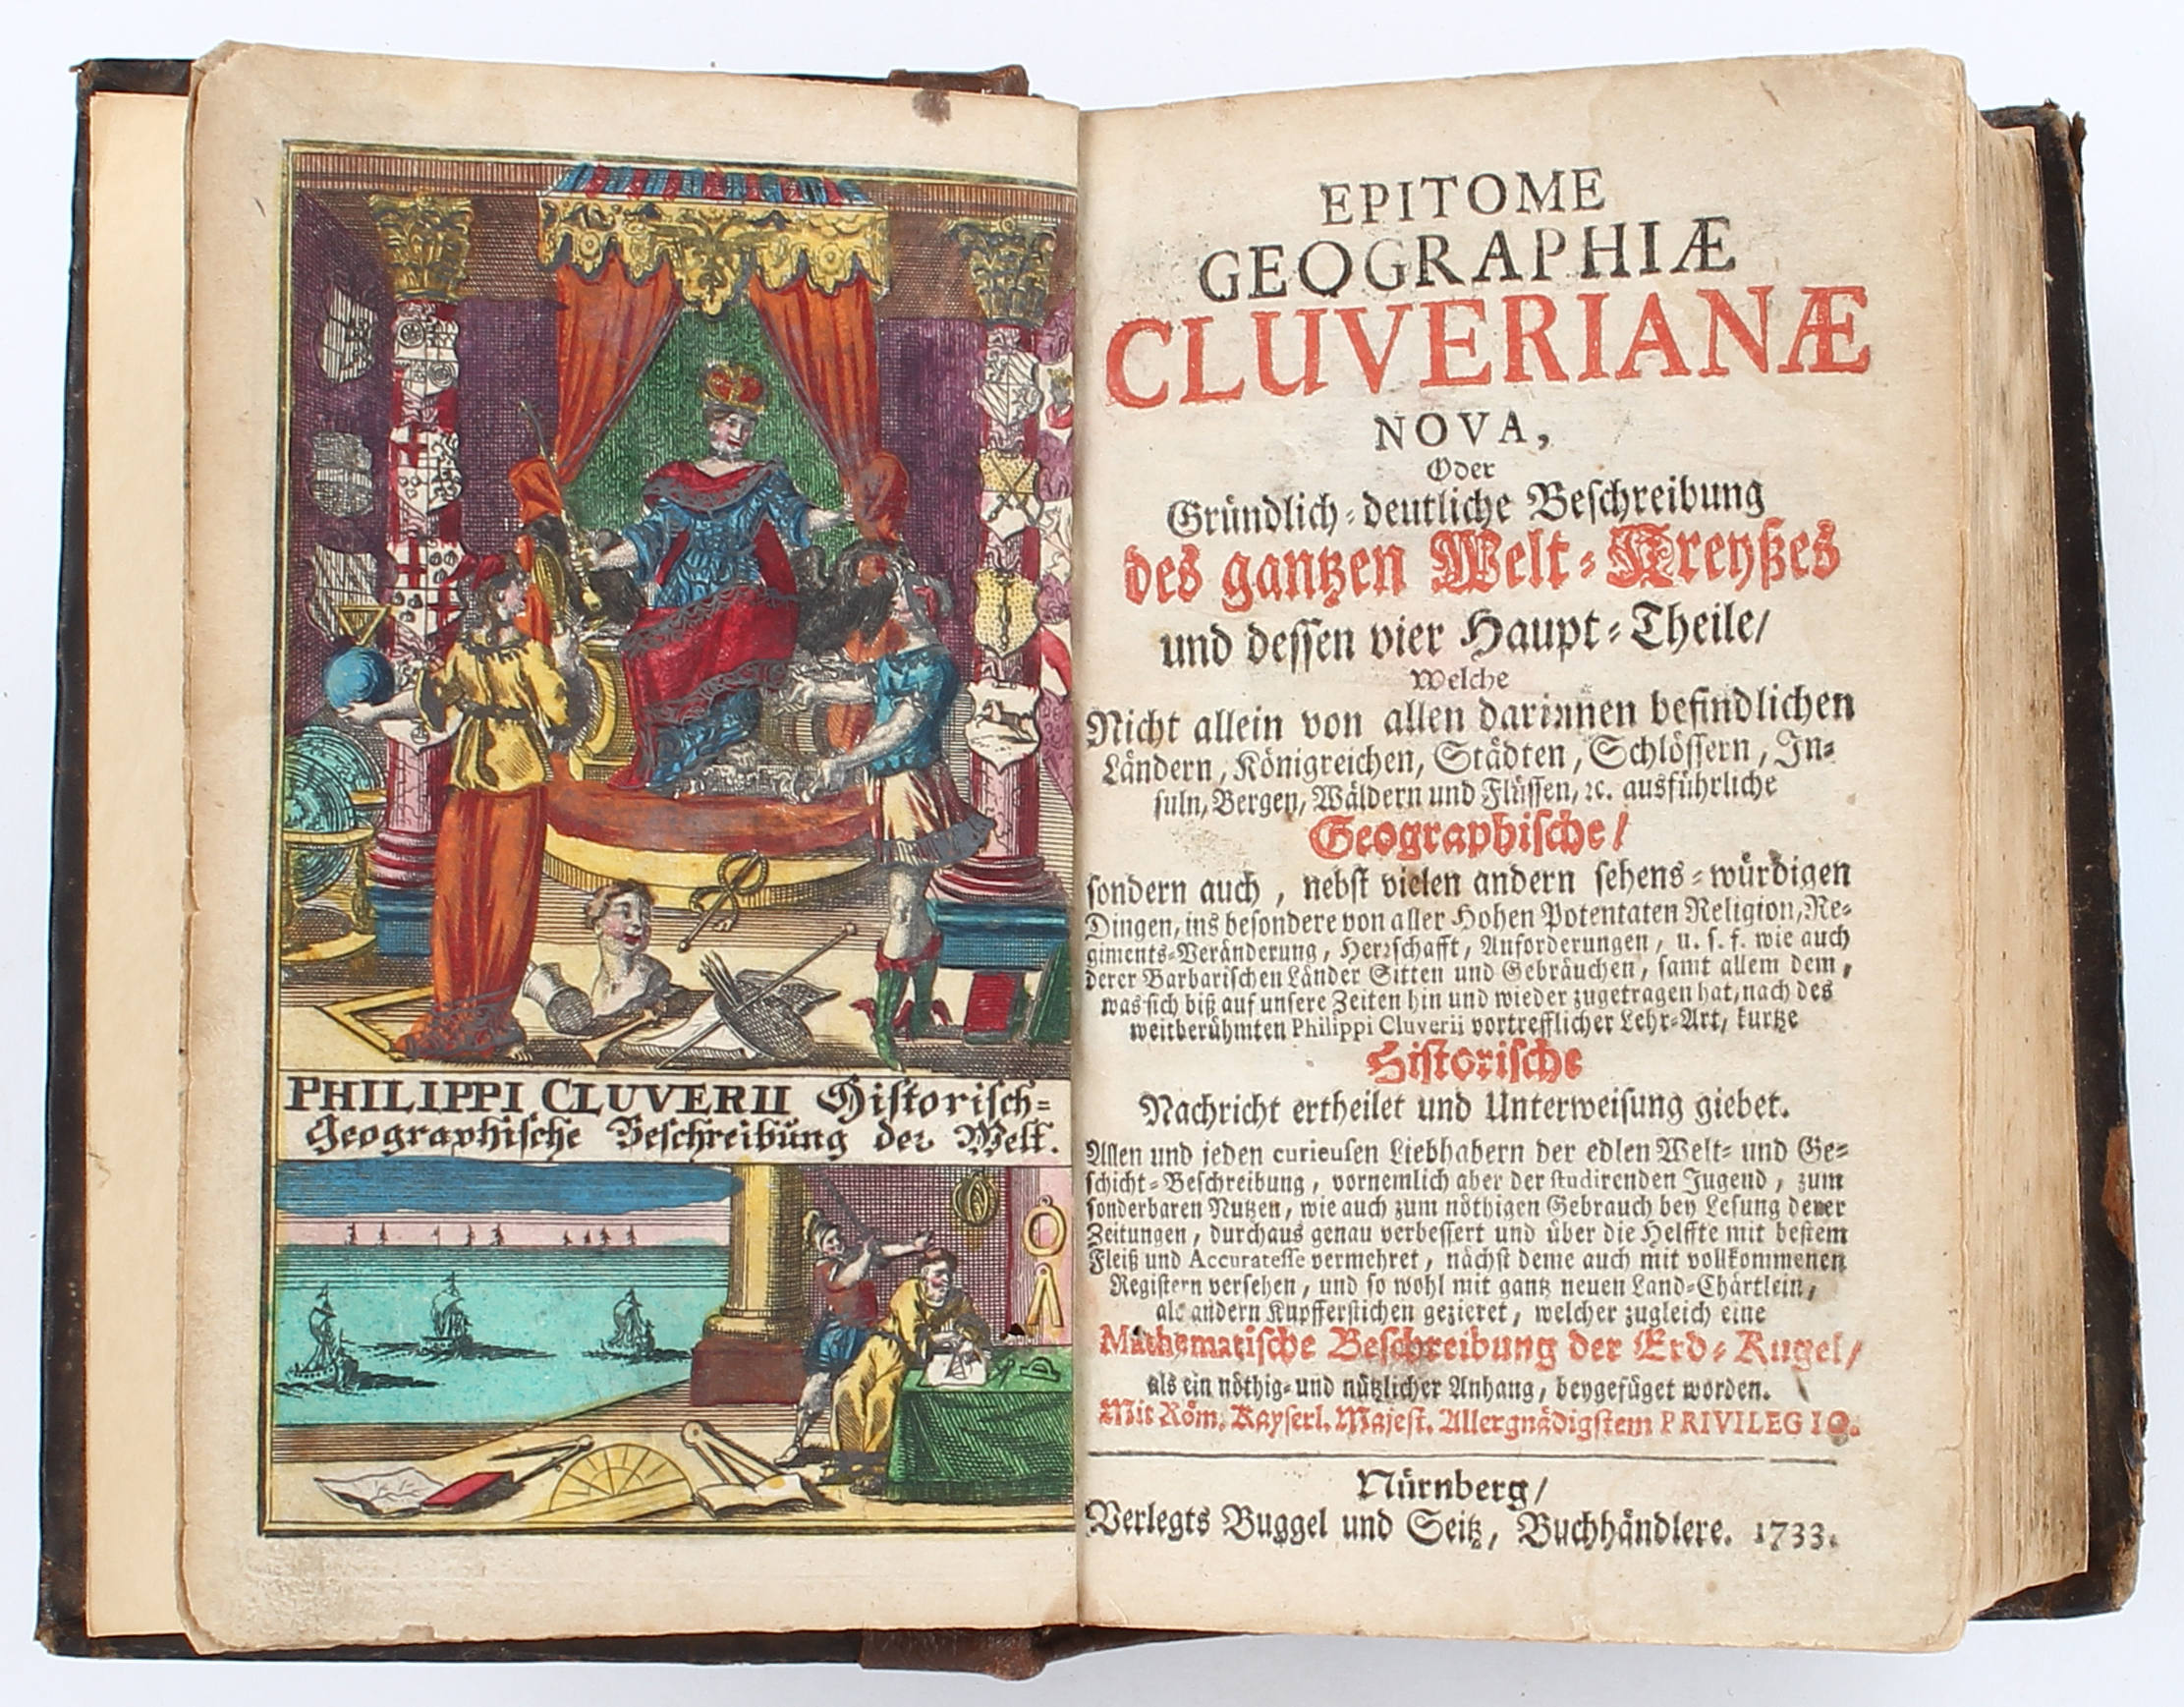 PHILIPPI CLUVERII Historisch=
Geographische Beschreibung der Welt.
EPITOME
GEOGRAPHIÆ
CLUVERIANÆ
NOVA,
Oder
Gründlich=deutliche Beschreibung
des gantzen Welt=Kreyßes
und dessen vier Haupt=Theile/
Welche
Nicht allein von allen darinnen befindlichen
Ländern, Königreichen, Städten, Schlössern, In=
suln, Bergen, Wäldern und Flüssen, ꝛc. ausführliche
Geographische/
sondern auch, nebst vielen andern sehens=würdigen
Dingen, ins besondere von aller Hohen Potentaten Religion, Re=
giments=Veränderung, Herrschafft, Anforderungen, u. s. f. wie auch
derer Barbarischen Länder Sitten und Gebräuchen, samt allem dem,
was sich biß auf unsere Zeiten hin und wieder zugetragen hat, nach des
weitberühmten Philippi Cluverii vortrefflicher Lehr=Art, kurtze
Historische
Nachricht ertheilet und Unterweisung giebet.
Allen und jeden curieusen Liebhabern der edlen Welt= und Ge=
schicht=Beschreibung, vornemlich aber der studirenden Jugend, zum
sonderbaren Nutzen, wie auch zum nöthigen Gebrauch bey Lesung derer
Zeitungen, durchaus genau verbessert und über die Helffte mit bestem
Fleiß und Accuratesse vermehret, nächst deme auch mit vollkommenen
Registern versehen, und so wohl mit gantz neuen Land=Chärtlein,
als andern Kupfferstichen gezieret, welcher zugleich eine
Mathematische Beschreibung der Erd=Kugel/
als ein nöthig=und nützlicher Anhang, beygefüget worden.
Mit Röm. Kayserl. Majest. Allergnädigstem PRIVILEGIO.
Nürnberg/
Verlegts Buggel und Seitz, Buchhändlere. 1733.